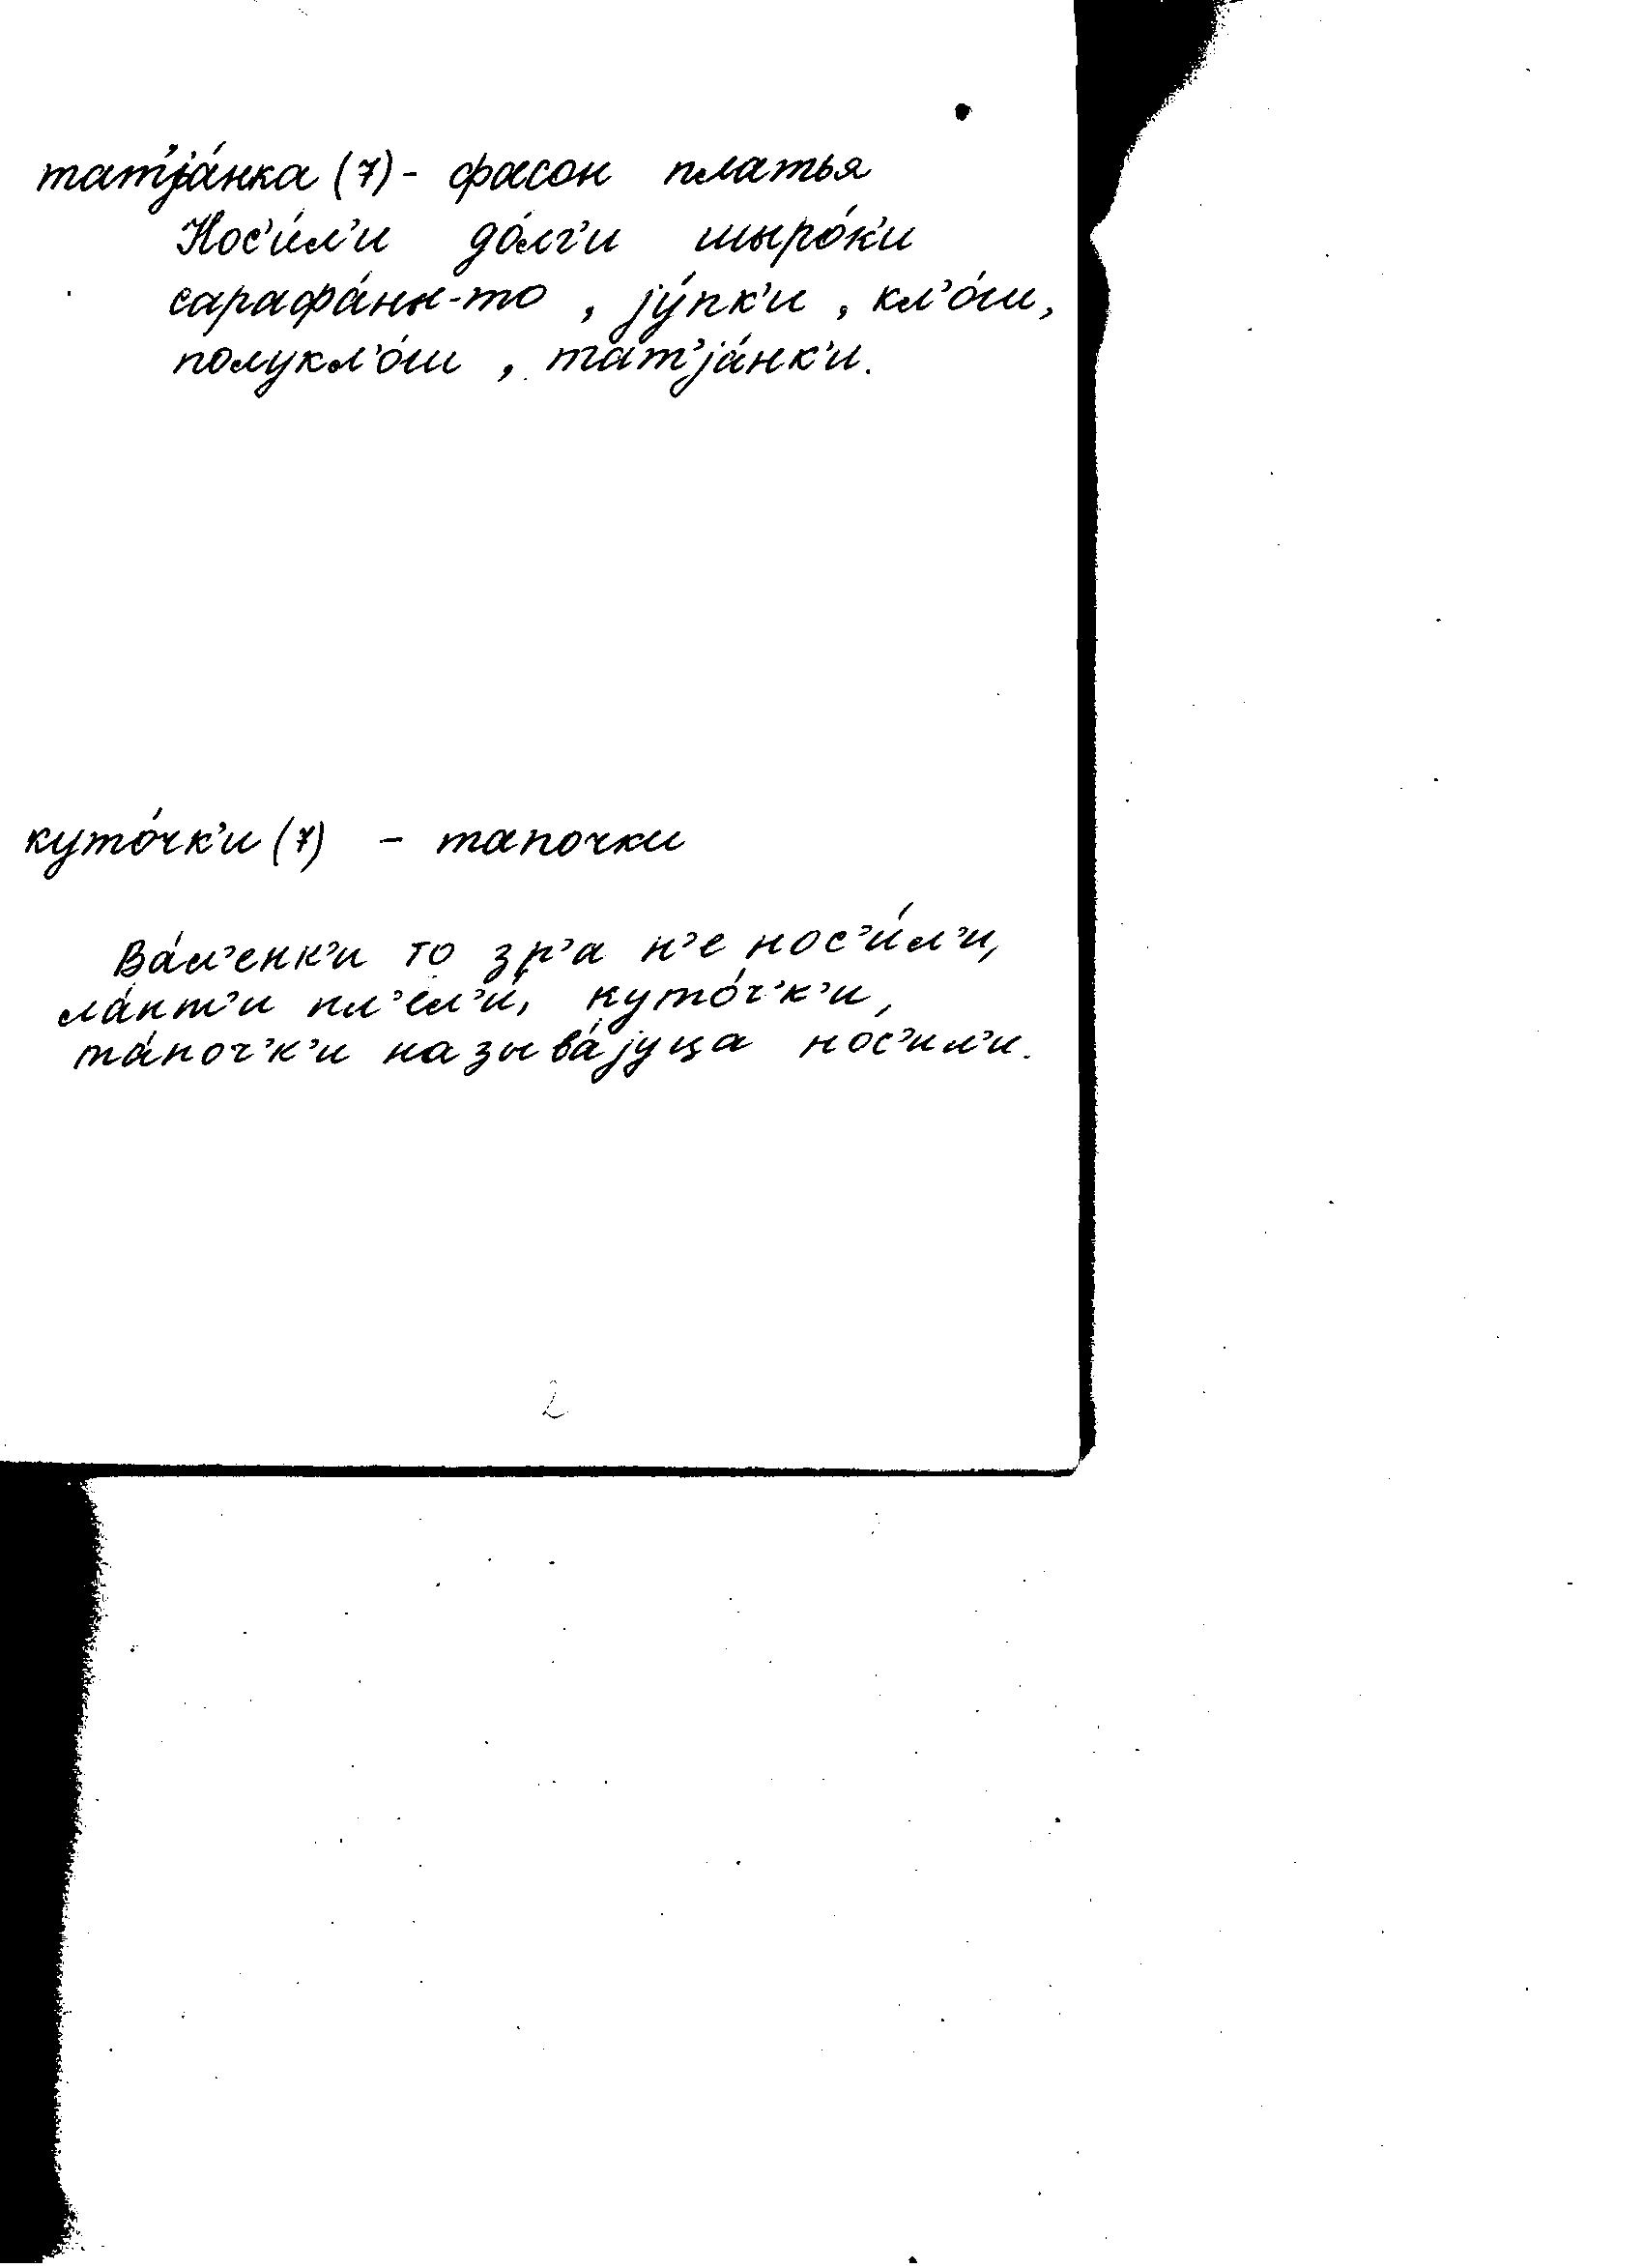 тат'jа́нка (7) - фасон платья
Нос'и́л'и до́лг'и шыро́к'и
сарафа́ны-то , jу́пк'и , кл'о́ш,
полукл'о́ш , тат'jа́нк'и.
куто́чк'и (7) - тапочки
Ва́л'енк'и то зр'а н'е нос'и́л'и,
ла́пт'и пл'ел'и́, куто́ч'к'и,
та́поч'к'и называ́jуца нос'ил'и.
2